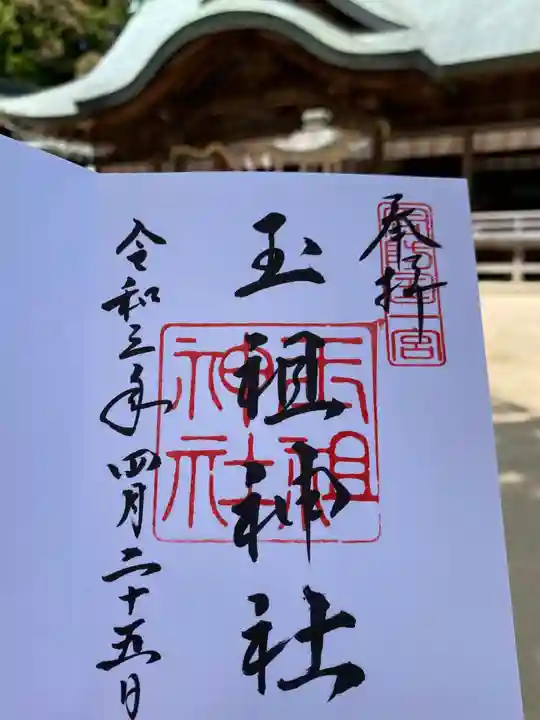 奉拝
周防國一宮
玉祖神社
玉祖神社
令和三年四月二十五日